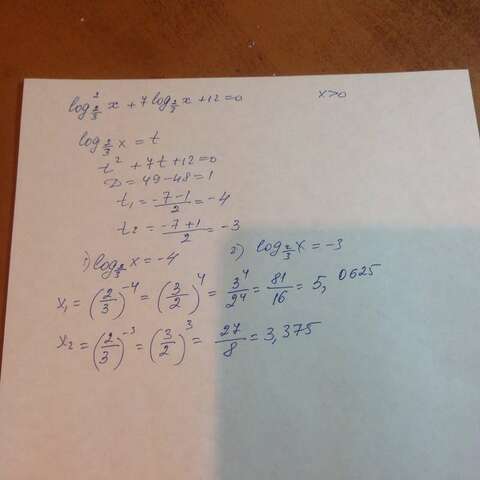 log²_{2/3} x + 7 log_{2/3} x + 12 = 0    x>0
log_{2/3} x = t
t² + 7t + 12 = 0
D = 49 - 48 = 1
t₁ = (-7-1)/2 = -4
t₂ = (-7+1)/2 = -3
1) log_{2/3} x = -4    2) log_{2/3} x = -3
x₁ = (2/3)^{-4} = (3/2)^4 = 3^4/2^4 = 81/16 = 5,0625
x₂ = (2/3)^{-3} = (3/2)^3 = 27/8 = 3,375